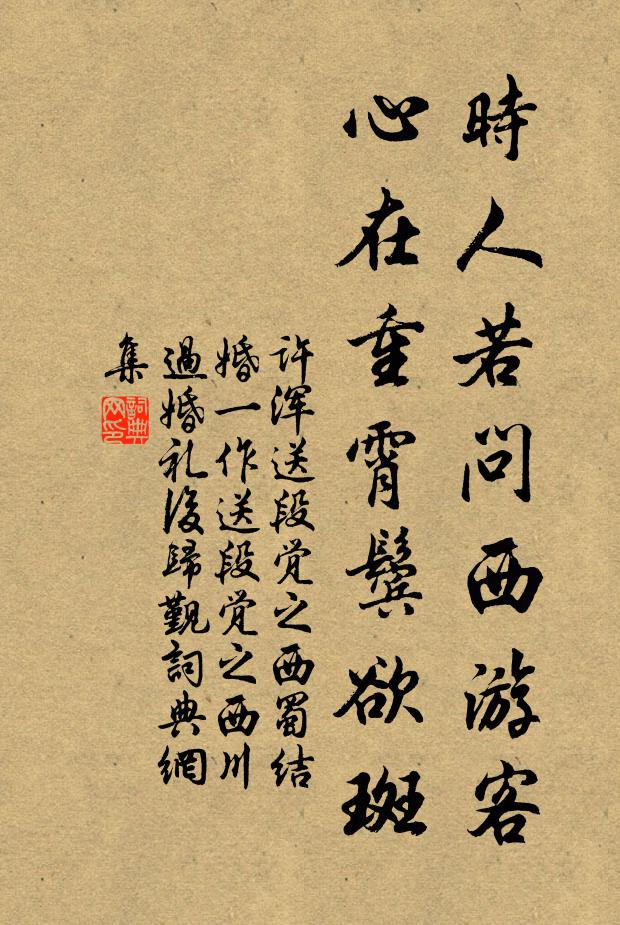 時人若問西游客
心在重霄鬢欲斑
许渾送段觉之西蜀结
婚一作送段觉之西川
過婚礼後歸觐詞典網
集
詞典網印